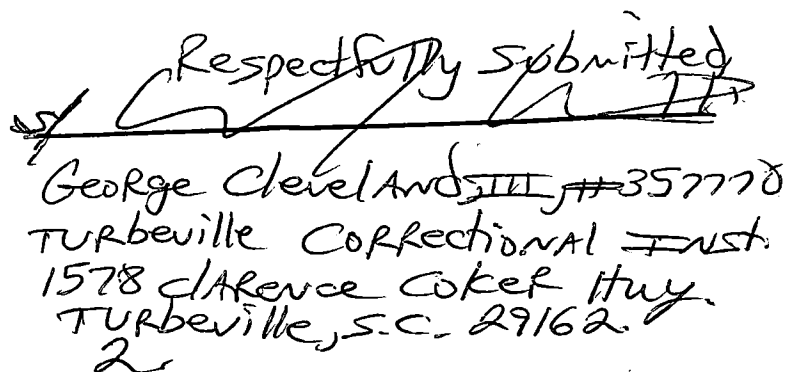 Respectfully Submitted
s/
George Cleveland, III, #357770
Turbeville Correctional Inst.
1578 Clarence Coker Hwy.
Turbeville, S.C. 29162.
2.